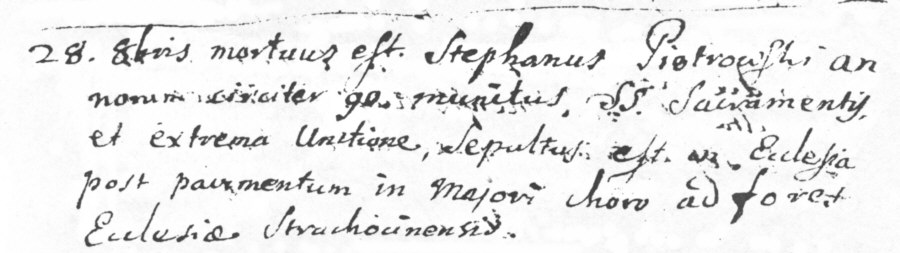 28. 8bris mortuus est. Stephanus Piotrowski an
norum circiter 90. munitus, SS. Sacramentis,
et extrema Unctione, Sepultus est. in Eclesia
post pavimentum in majori choro ad fores
Eclesiæ Strachocinensis.